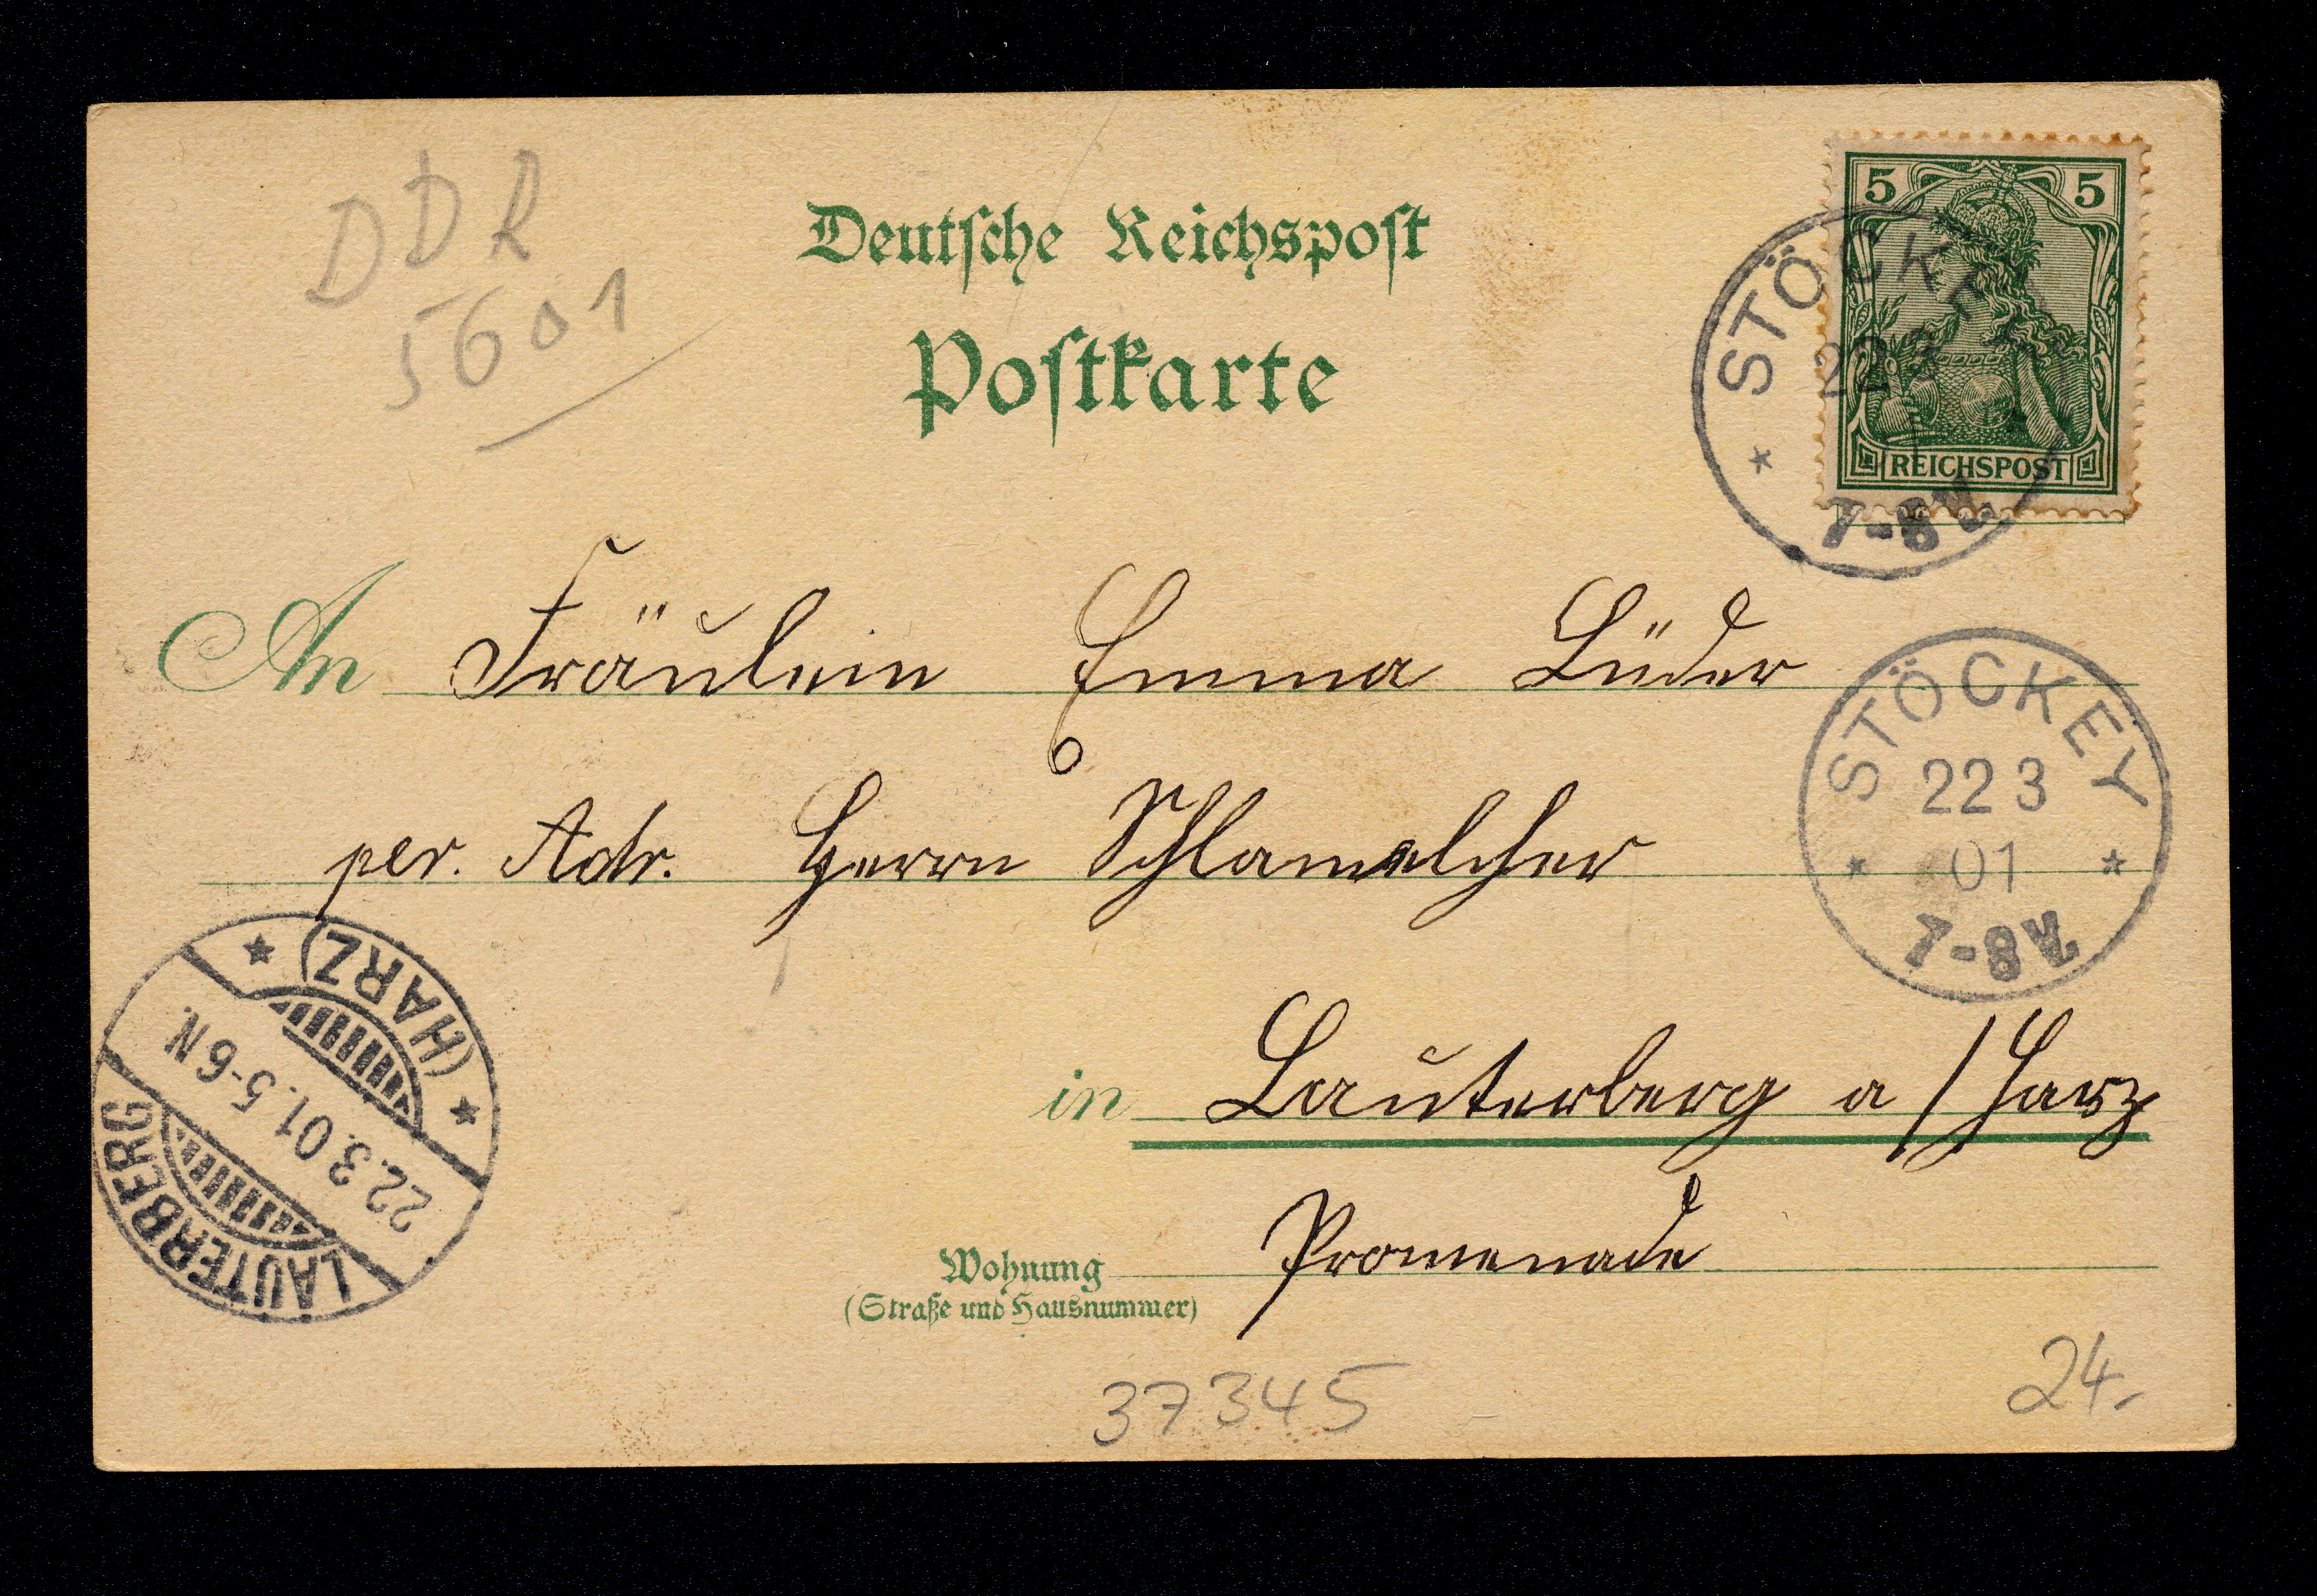 DDR
5601
Deutsche Reichspost
Postkarte
5 5
REICHSPOST
STÖCKEY
22 3
7-8V.
An Fräulein Emma Lüder
STÖCKEY
22 3
01
7-8V.
per. Adr. Herrn
LAUTERBERG
(HARZ)
22.3.01.5-6N.
in Lauterberg a/Harz
Wohnung Promenade
(Straße und Hausnummer)
37345
24.-